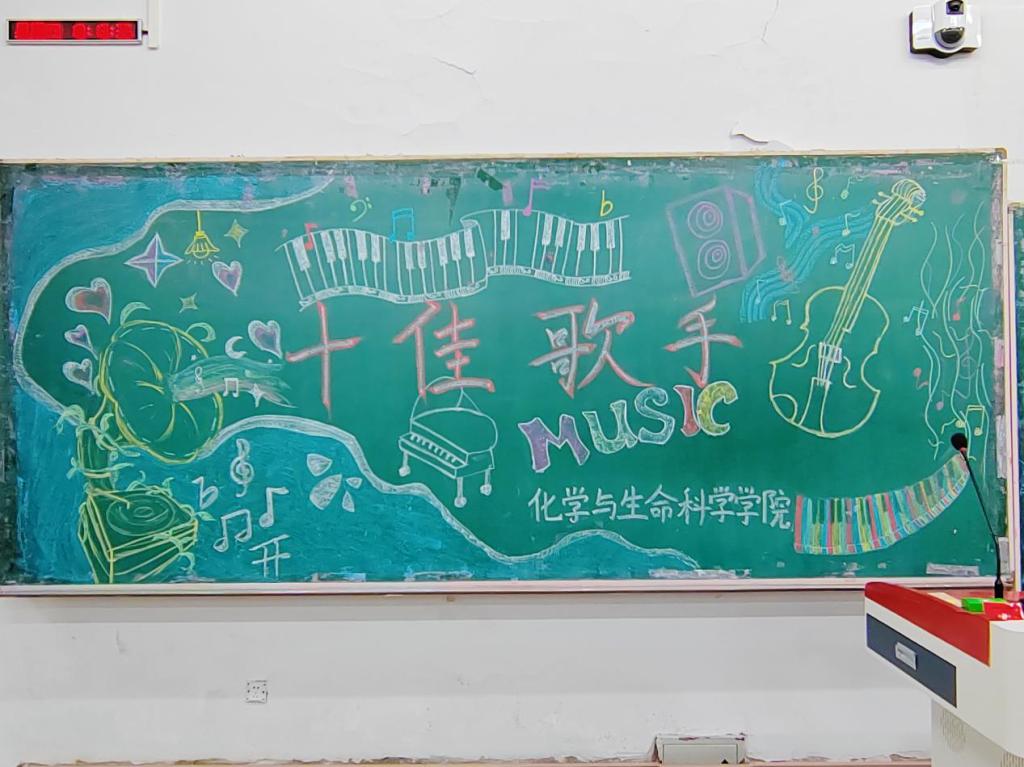 十佳歌手
MUSIC
化学与生命科学学院